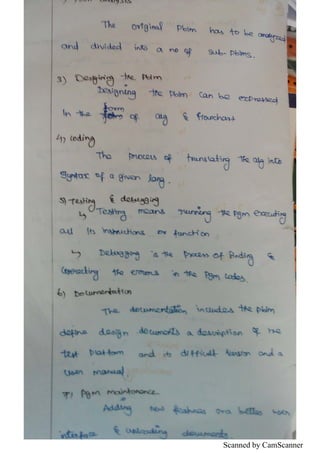 analysis
The original Pblm has to be analyzed
and divided into a no of Sub-Pblms.
3) Designing the Pblm
Designing the Pblm Can be expressed
In the form of alg & flowchart
4) Coding
The process of translating The alg into
Syntax of a given lang.
5) Testing & debugging
↳ Testing means running the Pgm executing
all its instructions or function
↳ Debugging is the process of finding &
Correcting the errors in the Pgm codes.
6) Documentation
The documentation includes the Pblm
define design documents a description of the
test Platform and its difficult and a
User manual.
7) Pgm maintanence
Adding new features or a better user
interface & documents
Scanned by CamScanner